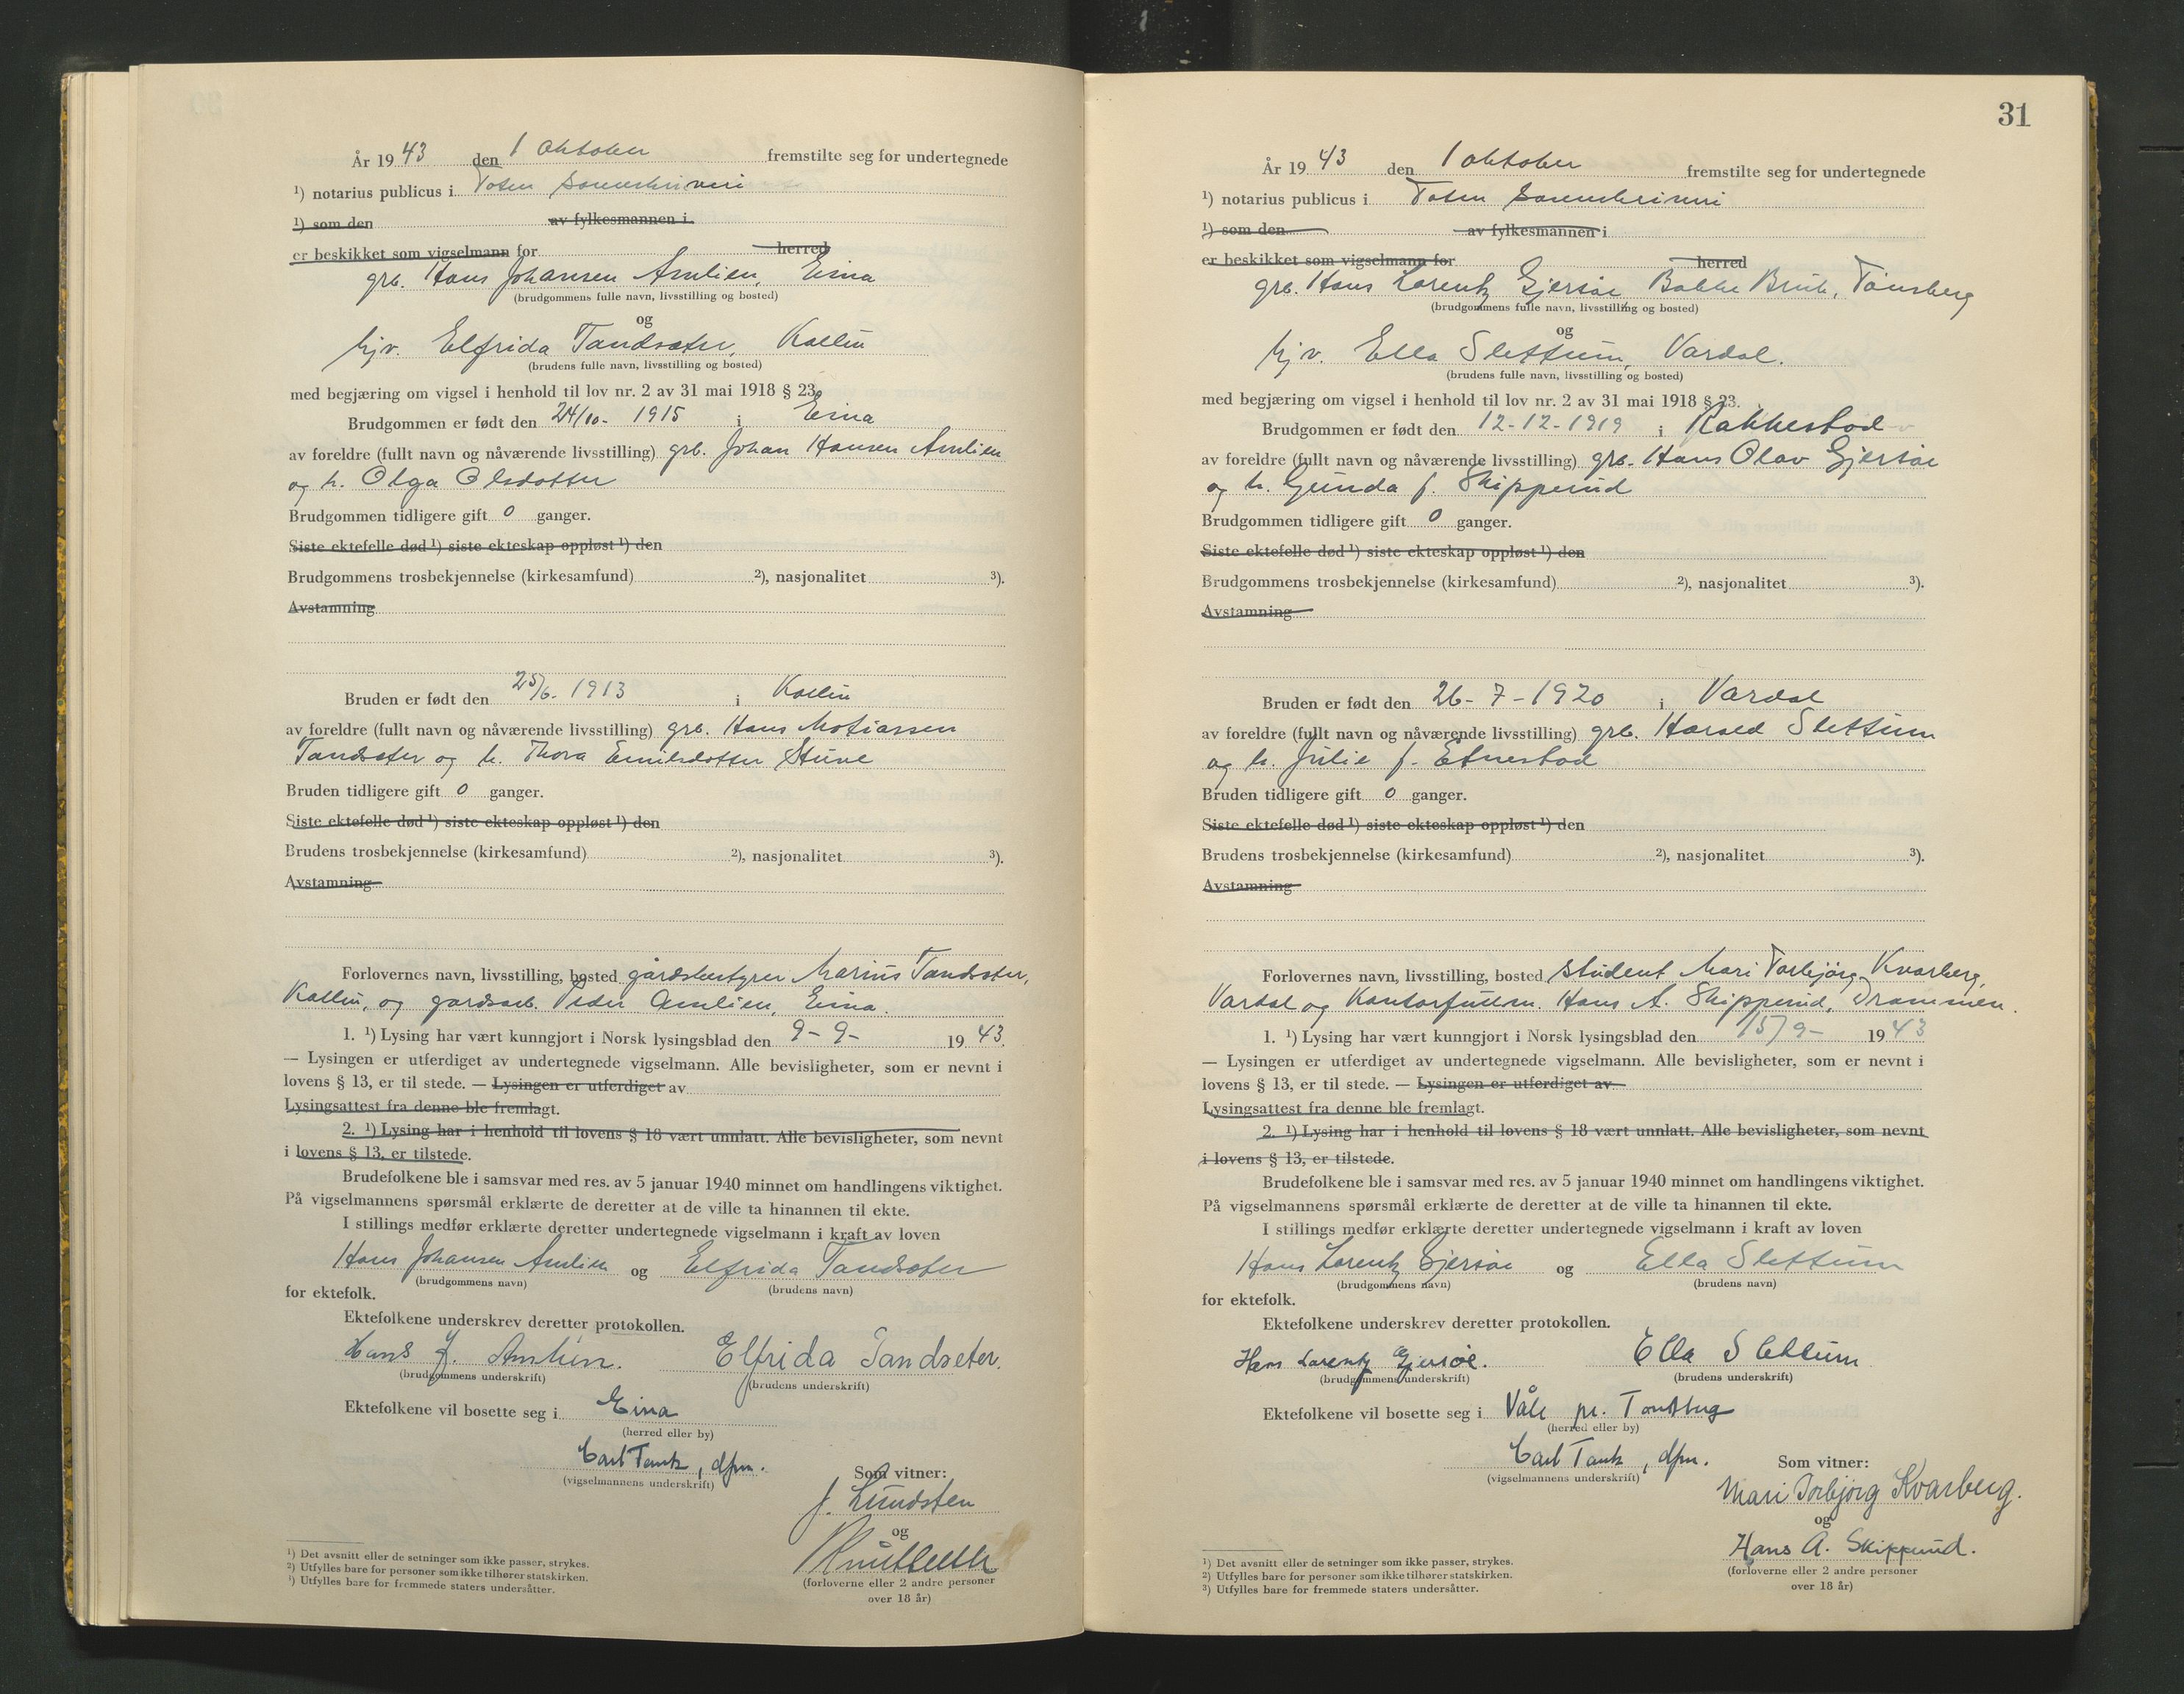 År 19 43 den 1 oktober fremstilte seg for undertegnede
¹) notarius publicus i Toten sorenskriveri
¹) som den av fylkesmannen i
er beskikket som vigselmann for herred
grb. Hans Johansen Amlien, Eina
(brudgommens fulle navn, livsstilling og bosted)
og
hjv. Elfrida Tandsæter, Kolbu
(brudens fulle navn, livsstilling og bosted)
med begjæring om vigsel i henhold til lov nr. 2 av 31 mai 1918 § 23.
Brudgommen er født den 24/10- 1915 i Eina
av foreldre (fullt navn og nåværende livsstilling) grb. Johan Hansen Amlien
og h. Olga Olsdotter
Brudgommen tidligere gift 0 ganger.
Siste ektefelle død ¹) siste ekteskap oppløst ¹) den
Brudgommens trosbekjennelse (kirkesamfund) ²), nasjonalitet ³).
Avstamning
Bruden er født den 25/6- 1913 i Kolbu
av foreldre (fullt navn og nåværende livsstilling) grb. Hans Matiassen
Tandsæter og h. Thora Emilsdotter
Bruden tidligere gift 0 ganger.
Siste ektefelle død ¹) siste ekteskap oppløst ¹) den
Brudens trosbekjennelse (kirkesamfund) ²), nasjonalitet ³).
Avstamning
Forlovernes navn, livsstilling, bosted gårdsbestyrer Marius Tandsæter,
Kolbu, og gårdsarb. Peder Amlien, Eina.
1. ¹) Lysing har vært kunngjort i Norsk lysingsblad den 9-9- 1943.
— Lysingen er utferdiget av undertegnede vigselmann. Alle bevisligheter, som er nevnt i
lovens § 13, er til stede. — Lysingen er utferdiget av
Lysingsattest fra denne ble fremlagt.
2. ¹) Lysing har i henhold til lovens § 18 vært unnlatt. Alle bevisligheter, som nevnt
i lovens § 13, er tilstede.
Brudefolkene ble i samsvar med res. av 5 januar 1940 minnet om handlingens viktighet.
På vigselmannens spørsmål erklærte de deretter at de ville ta hinannen til ekte.
I stillings medfør erklærte deretter undertegnede vigselmann i kraft av loven
Hans Johansen Amlien og Elfrida Tandsæter
(brudgommens navn) (brudens navn)
for ektefolk.
Ektefolkene underskrev deretter protokollen.
Hans J. Amlien. Elfrida Tandseter.
(brudgommens underskrift) (brudens underskrift)
Ektefolkene vil bosette seg i Eina
(herred eller by)
Carl Tank, dfm.
(vigselmannens underskrift)
Som vitner:
J. Lundsten
og
(forloverne eller 2 andre personer
over 18 år)
¹) Det avsnitt eller de setninger som ikke passer, strykes.
²) Utfylles bare for personer som ikke tilhører statskirken.
³) Utfylles bare for fremmede staters undersåtter.
31
År 19 43 den 1 oktober fremstilte seg for undertegnede
¹) notarius publicus i Toten sorenskriveri
¹) som den av fylkesmannen i
er beskikket som vigselmann for herred
grb. Hans Lorentz Gjersøe Bakke Bruk, Tønsberg
(brudgommens fulle navn, livsstilling og bosted)
og
hjv. Ella Slettum, Vardal.
(brudens fulle navn, livsstilling og bosted)
med begjæring om vigsel i henhold til lov nr. 2 av 31 mai 1918 § 23.
Brudgommen er født den 12-12-1919 i Rakkestad
av foreldre (fullt navn og nåværende livsstilling) grb. Hans Olav Gjersøe
og h. Gunda f. Skipperud
Brudgommen tidligere gift 0 ganger.
Siste ektefelle død ¹) siste ekteskap oppløst ¹) den
Brudgommens trosbekjennelse (kirkesamfund) ²), nasjonalitet ³).
Avstamning
Bruden er født den 26-7-1920 i Vardal
av foreldre (fullt navn og nåværende livsstilling) grb. Harald Slettum
og h. Julie f. Etnestad
Bruden tidligere gift 0 ganger.
Siste ektefelle død ¹) siste ekteskap oppløst ¹) den
Brudens trosbekjennelse (kirkesamfund) ²), nasjonalitet ³).
Avstamning
Forlovernes navn, livsstilling, bosted student Mari Torbjørg Kvarberg,
Vardal og Kontorfullm. Hans A. Skipperud, Drammen.
1. ¹) Lysing har vært kunngjort i Norsk lysingsblad den 15/9- 1943
— Lysingen er utferdiget av undertegnede vigselmann. Alle bevisligheter, som er nevnt i
lovens § 13, er til stede. — Lysingen er utferdiget av
Lysingsattest fra denne ble fremlagt.
2. ¹) Lysing har i henhold til lovens § 18 vært unnlatt. Alle bevisligheter, som nevnt
i lovens § 13, er tilstede.
Brudefolkene ble i samsvar med res. av 5 januar 1940 minnet om handlingens viktighet.
På vigselmannens spørsmål erklærte de deretter at de ville ta hinannen til ekte.
I stillings medfør erklærte deretter undertegnede vigselmann i kraft av loven
Hans Lorentz Gjersøe og Ella Slettum
(brudgommens navn) (brudens navn)
for ektefolk.
Ektefolkene underskrev deretter protokollen.
Hans Lorentz Gjersøe. Ella Slettum
(brudgommens underskrift) (brudens underskrift)
Ektefolkene vil bosette seg i Våle pr. Tønsberg
(herred eller by)
Carl Tank, dfm.
(vigselmannens underskrift)
Som vitner:
Mari Torbjørg Kvarberg.
og
Hans A. Skipperud.
(forloverne eller 2 andre personer
over 18 år)
¹) Det avsnitt eller de setninger som ikke passer, strykes.
²) Utfylles bare for personer som ikke tilhører statskirken.
³) Utfylles bare for fremmede staters undersåtter.